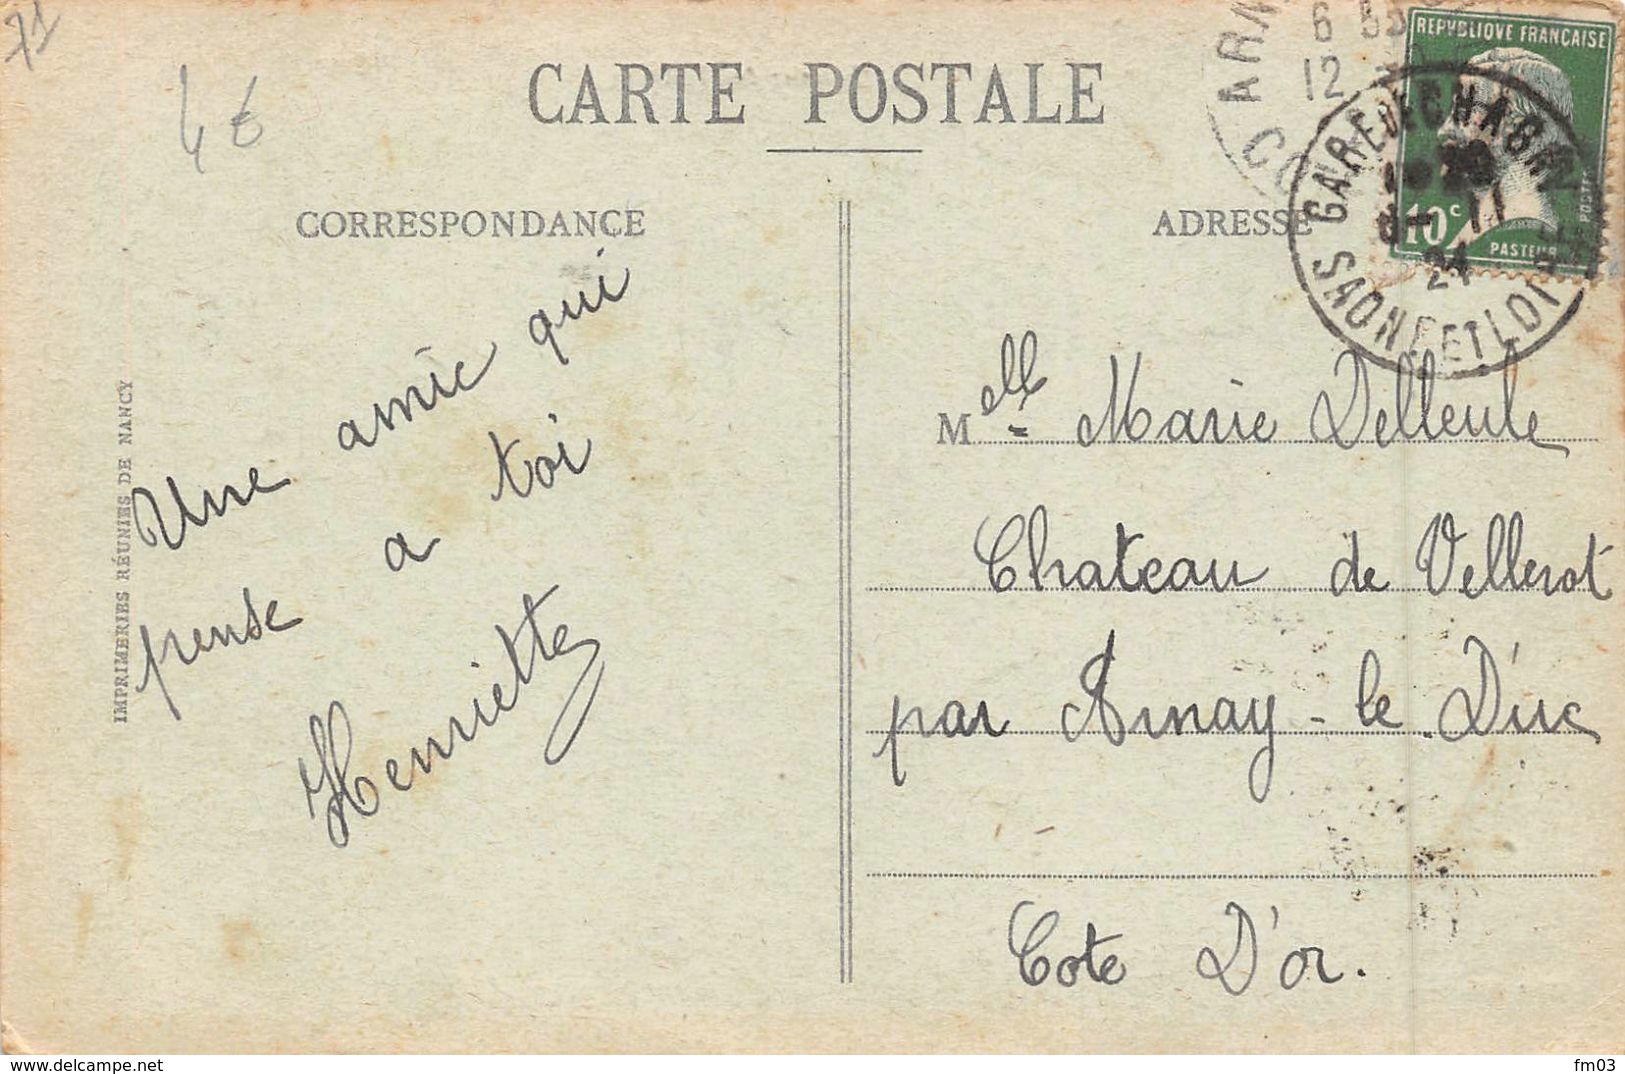 71
4 €
CARTE POSTALE
CORRESPONDANCE
ADRESSE
REPVBLIQVE FRANÇAISE
POSTES
10c
PASTEUR
GARE DE CHAGNY
11
24
SAONE ET LOIRE
ARN
6 55
12
CO
IMPRIMERIES RÉUNIES DE NANCY
Une amie qui
pense a toi
Henriette
Melle Marie Delleule
Chateau de Vellerot
par Arnay-le Duc
Cote D'or.
www.delcampe.net
fm03